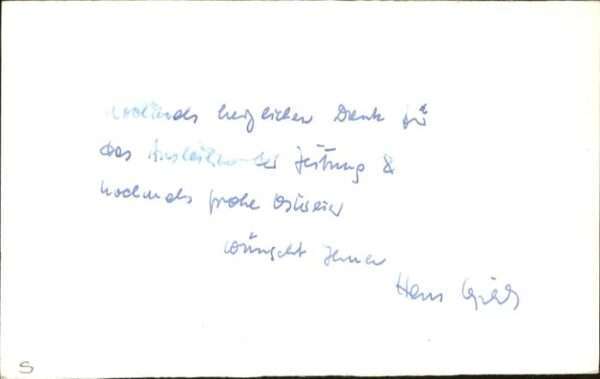 nochmals herzlichen Dank für
das Ausleihen der Zeitung &
nochmals frohe Ostereier
wünscht Ihnen
Hans
S